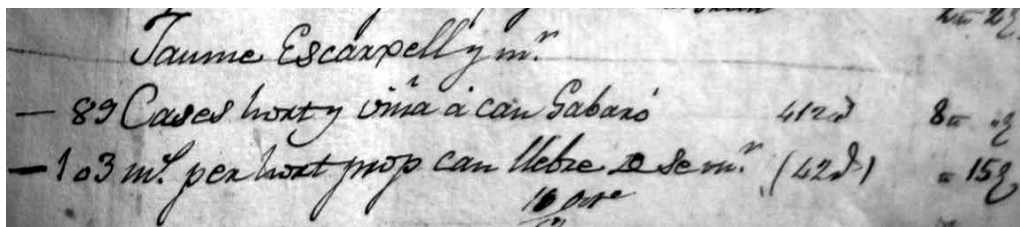 Jaume Escarpell y m.r
— 89 Cases hort y viña á can Gabaró 412d 8=
— 103 m.l per hort prop can llebre se m.r (42d) = 15
16